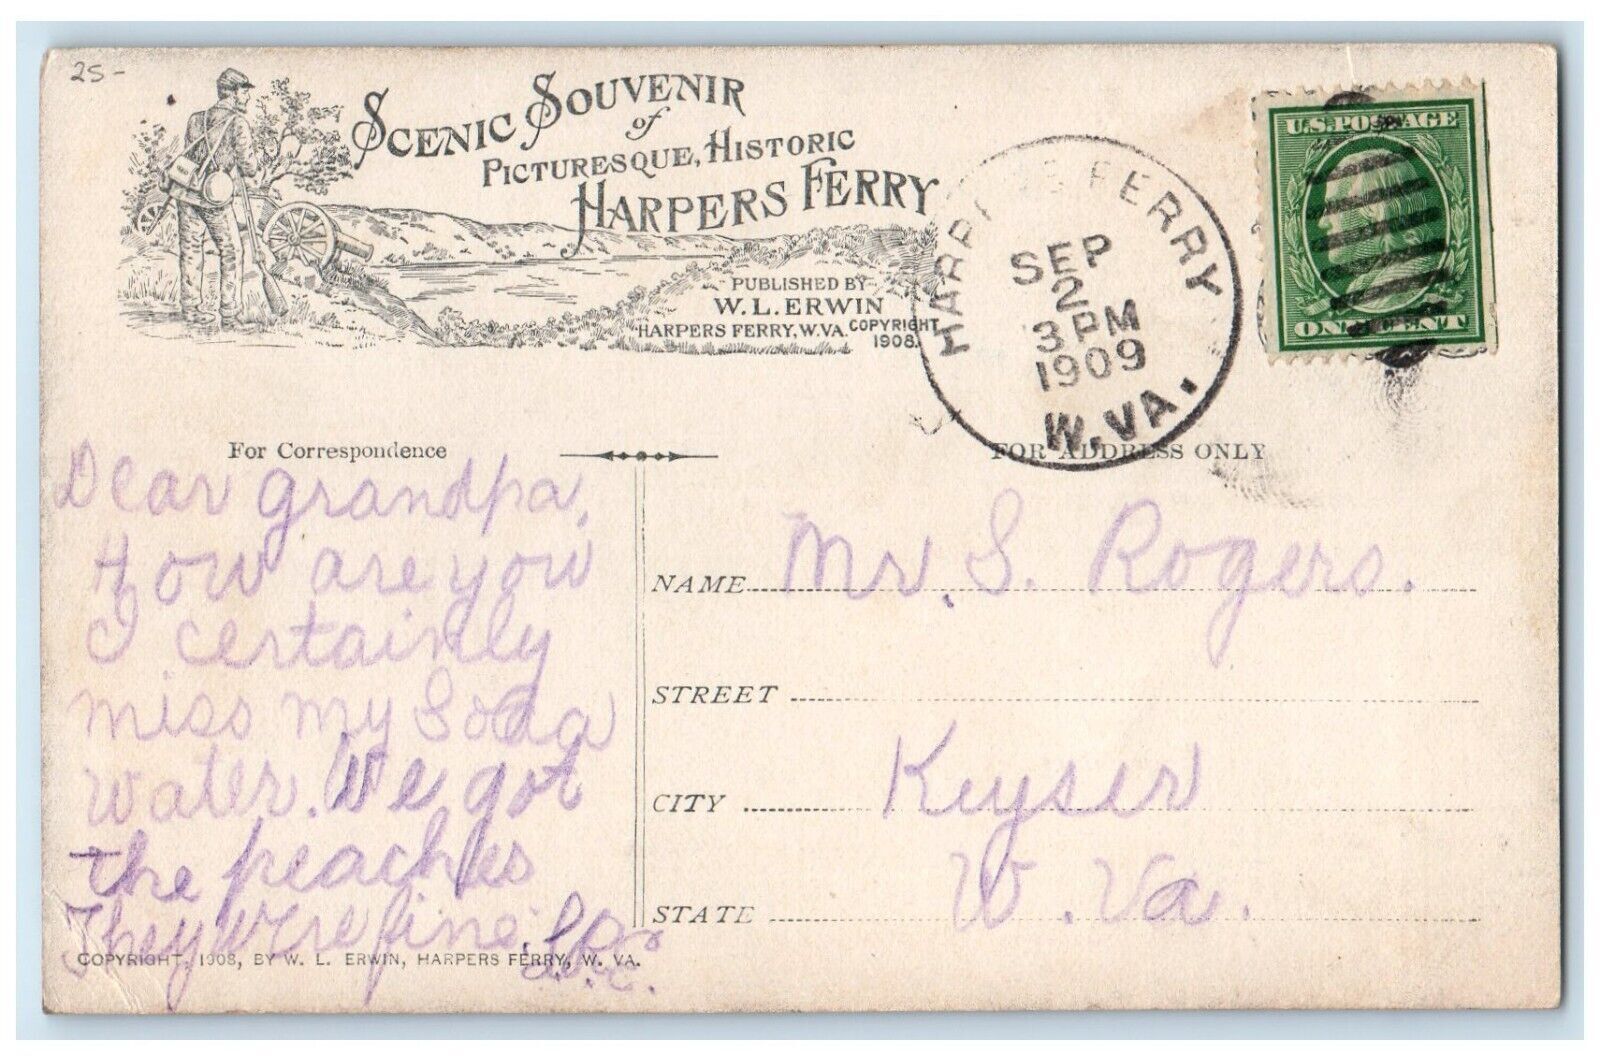 25-
SCENIC SOUVENIR
of
PICTURESQUE, HISTORIC
HARPERS FERRY
PUBLISHED BY
W. L. ERWIN
HARPERS FERRY, W. VA. COPYRIGHT 1908.
HARPERS FERRY
SEP
2
3 PM
1909
W. VA.
U.S. POSTAGE
ONE CENT
For Correspondence
FOR ADDRESS ONLY
Dear grandpa,
How are you
I certainly
miss my Soda
water. We got
the peaches
They were fine.
NAME Mr. S. Rogers.
STREET
CITY Keyser
STATE W. Va.
COPYRIGHT, 1908, BY W. L. ERWIN, HARPERS FERRY, W. VA.